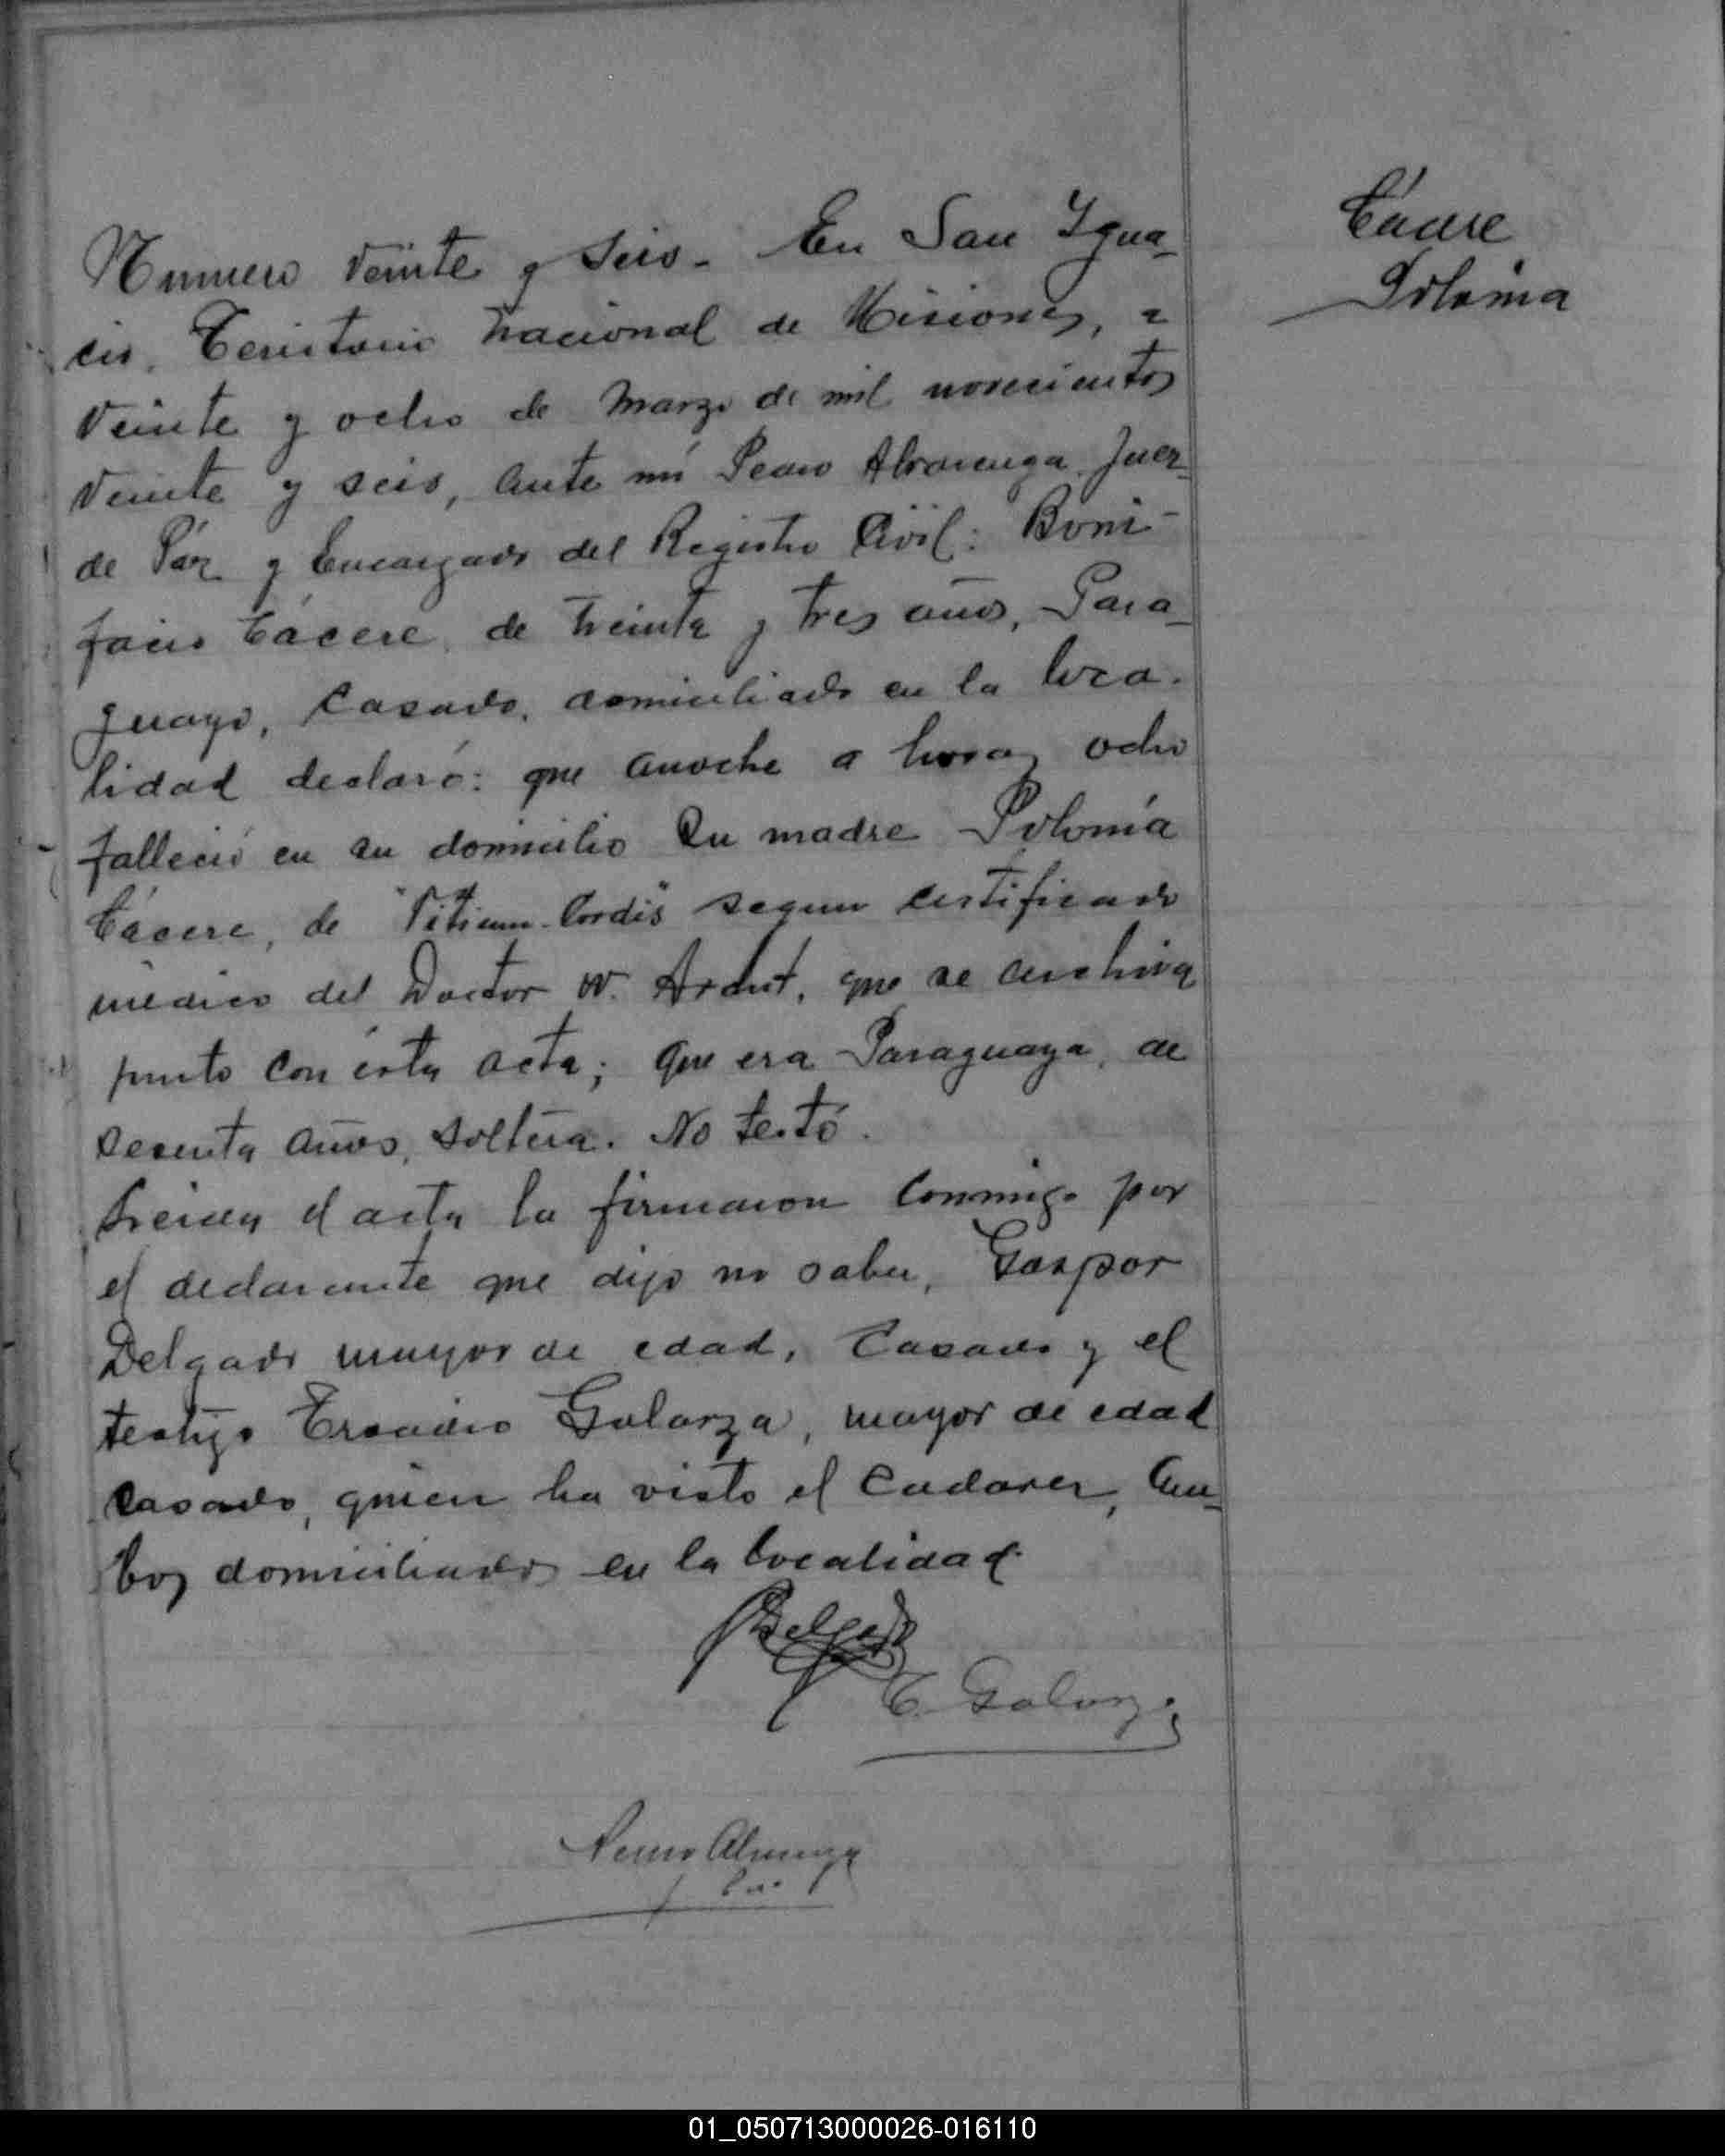 Numero veinte y seis - En San Ygna-
cio, Territorio nacional de Misiones, a
veinte y ocho de Marzo de mil novecientos
veinte y seis, ante mí Pedro Alvarenga Juez
de Páz y Encargado del Registro Civil: Boni-
facio Cácere, de treinta y tres años, Para-
guayo, casado, domiciliado en la loca-
lidad declaró: que anoche a horas ocho
falleció en su domicilio su madre Polonia
Cácere, de "Vitium-Cordis" segun certificado
médico del Doctor W. Arndt, que se archiva
junto con ésta acta; que era Paraguaya, de
sesenta años, soltera. No testó.
Leida el acta la firmaron conmigo por
el declarante que dijo no saber, Gaspar
Delgado mayor de edad, casado y el
testigo Galarza, mayor de edad
casado, quien ha visto el cadaver, am-
bos domiciliados en la localidad.
Cácere
Polonia
Delgado
E. Galarza
Pedro Alvarenga
01_050713000026-016110